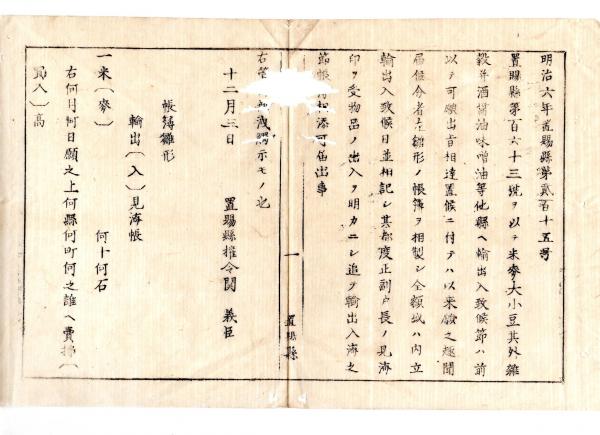 明治六年置賜縣第貳百十五号
置賜縣第百六十三號ヲ以テ米麥大小豆其外雜
穀并酒醤油味噌油等他縣ヘ輸出入致候節ハ前
以テ可願出旨相達置候ニ付テハ以来願之趣聞
届候令者左雛形ノ帳簿ヲ相製シ全額或ハ内立
輸出入致候日並相記シ其都度正副戸長ノ見濟
印ヲ受物品ノ出入ヲ明カニシ追テ輸出入濟之
節帳 相添可届出事
右管 洩 示モノ也
十二月三日 置賜縣權令關 義臣
帳簿雛形
輸出〔入〕見濟帳
一米〔麥〕 何十何石
右何月何日願之上何縣何町何之誰ヘ賣拂〔
買入〕高
一
置賜縣